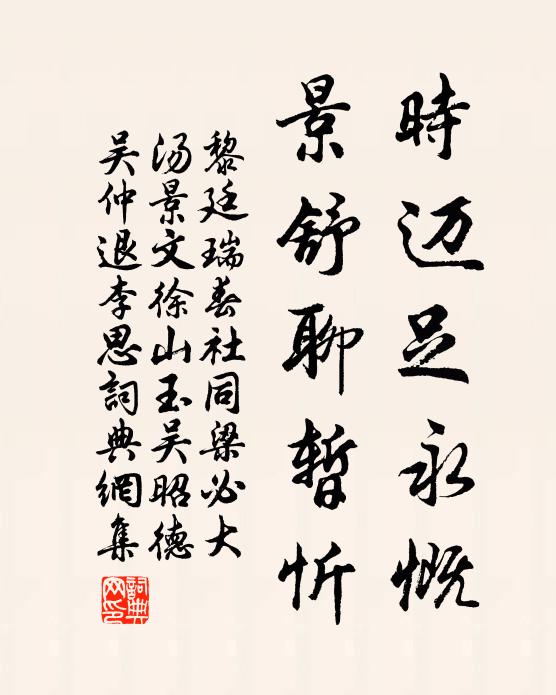 時迈足永慨
景舒聊暫忻
黎廷瑞春社同梁必大
汤景文徐山玉吴昭德
吴仲退李思詞典網集
詞典網印